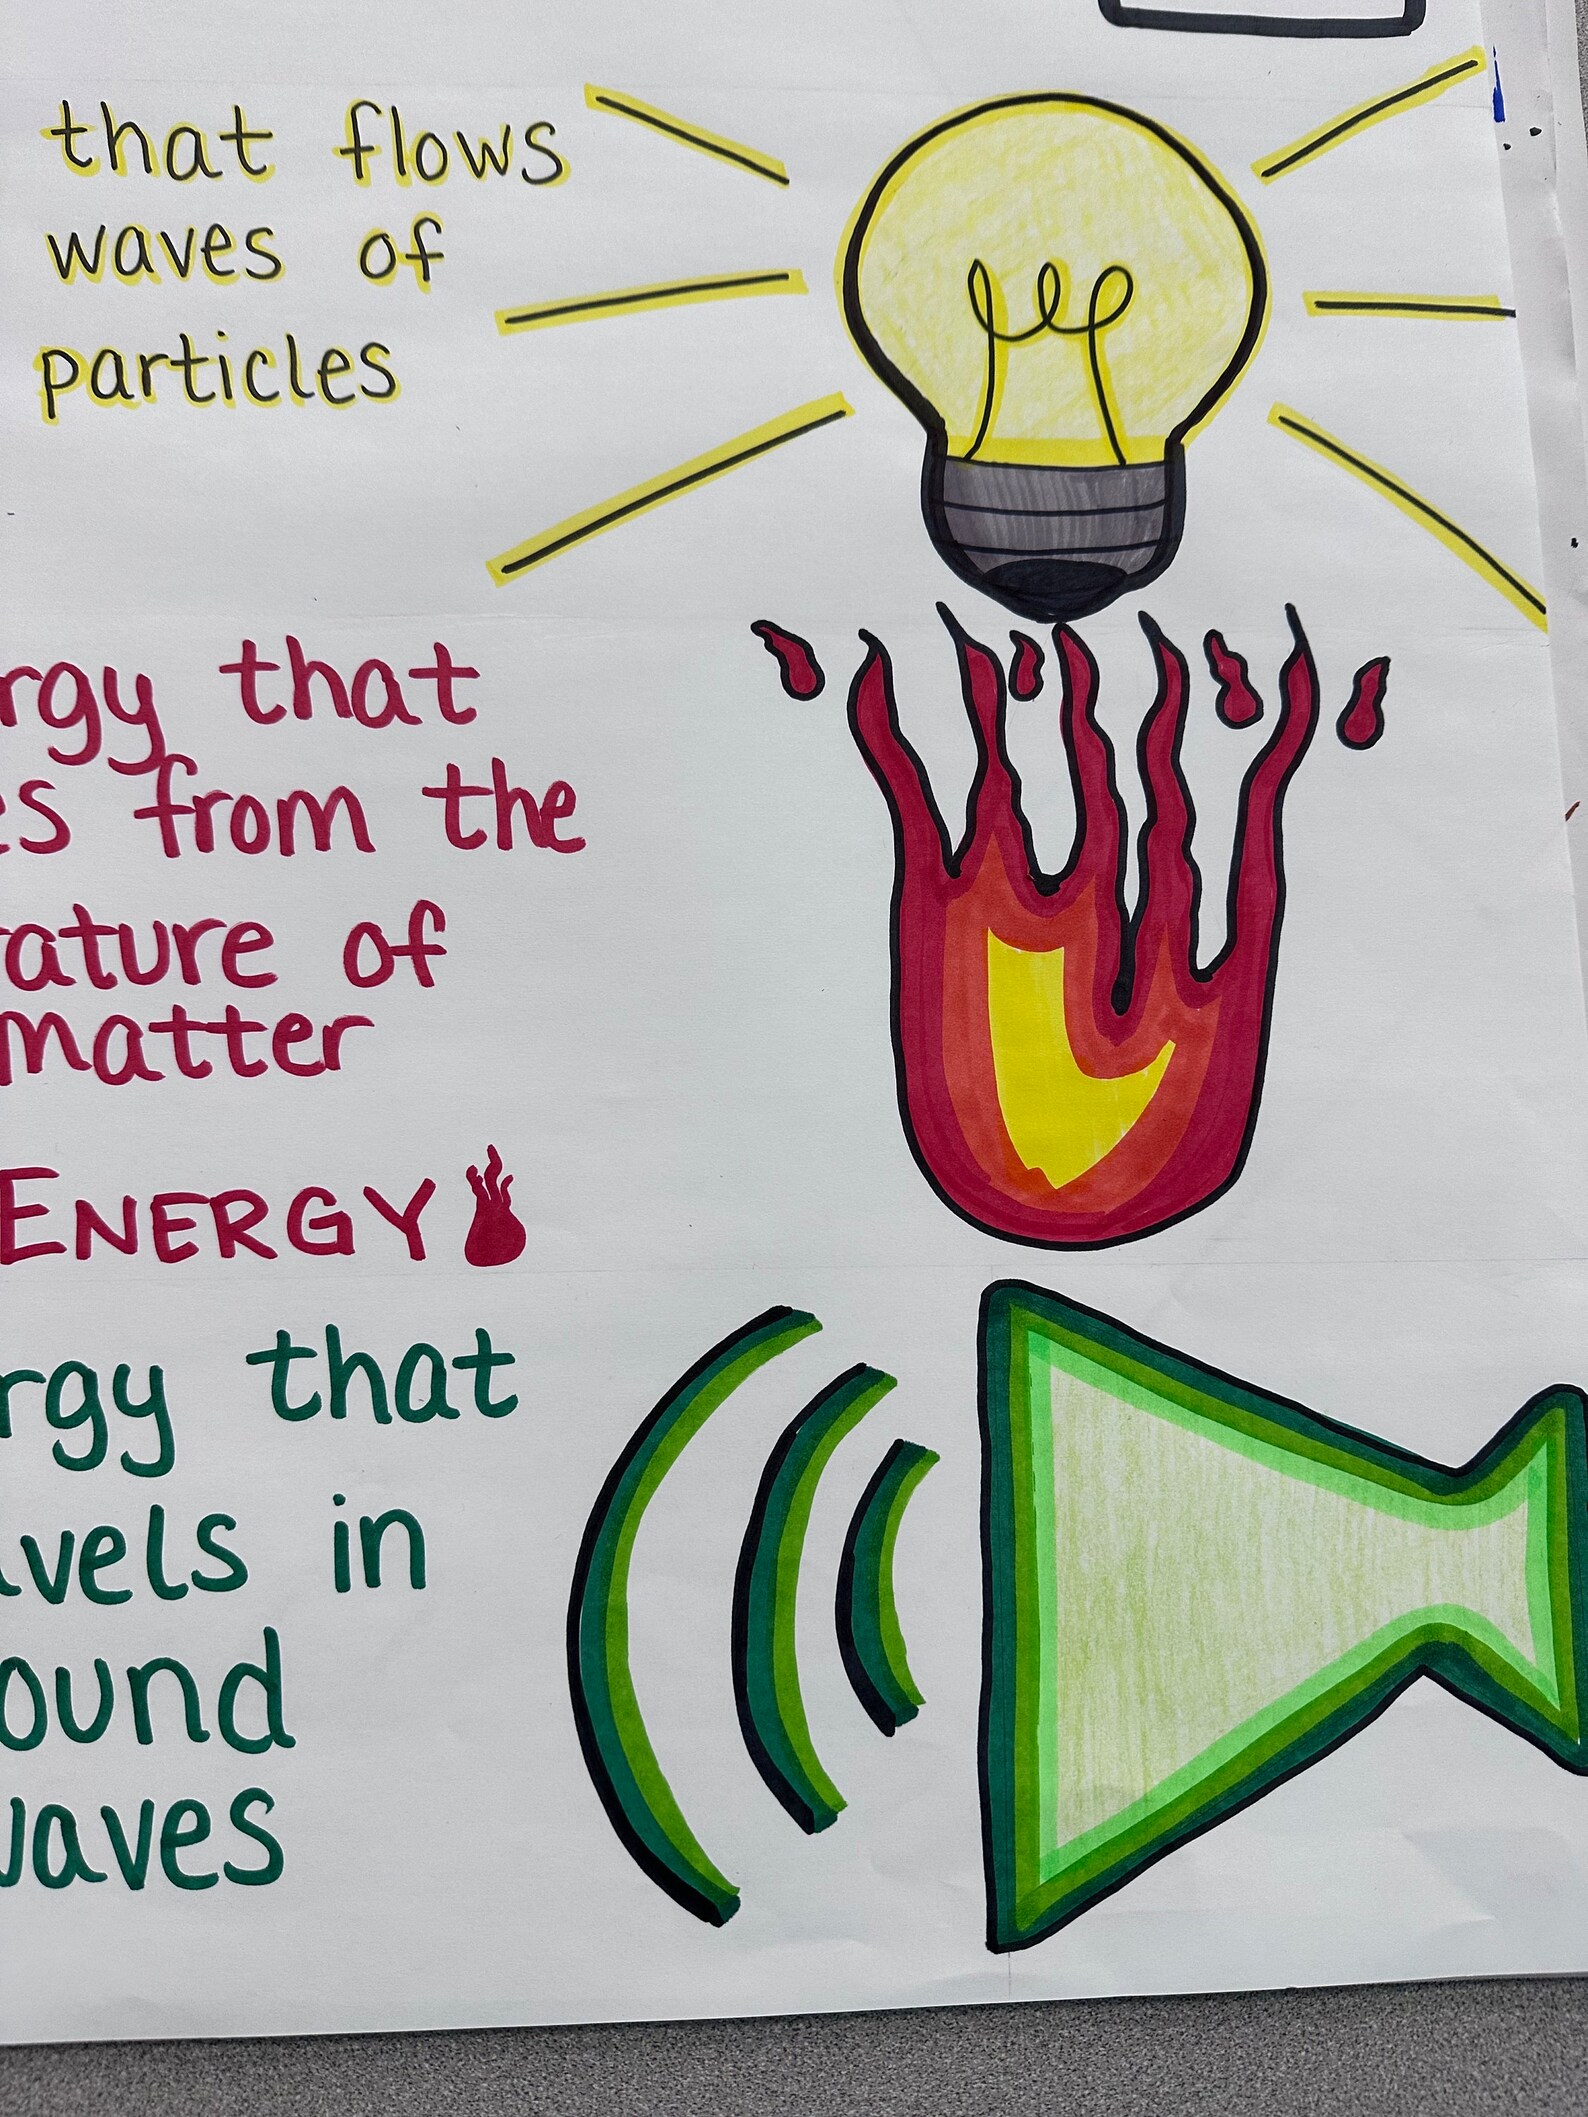 that flows
waves of
particles
rgy that
es from the
rature of
matter
ENERGY
rgy that
avels in
ound
waves